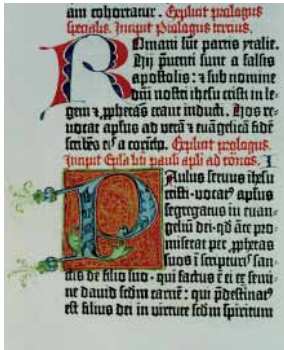 am cohortatur. Explicit prologus
specialis. Incipit Prologus tercius.
Romani sūt partis ytalie.
Hij puenti sunt a falsis
apostolis: ⁊ sub nomine
dn̄i nostri ihesu cristi in le⸗
gem ⁊ ꝓphetas erant inducti. Hos re⸗
uocat apl̄us ad verā ⁊ euāgelicā fidē
scribēs eis a corīcho. Explicit prologus.
Incipit Ep̄la bt̄i pauli apl̄i ad romos. I
Paulus seruus ihesu
cristi · vocatus apl̄us
segregatus in euan⸗
geliū dei · qd̄ āte pro⸗
miserat per ꝓphetas
suos ī scripturis san⸗
ctis de filio suo · qui factus ē ei ex semi⸗
ne dauid sc̄dm carnē: qui p̄destinatus
est filius dei in virtute sc̄dm spiritum